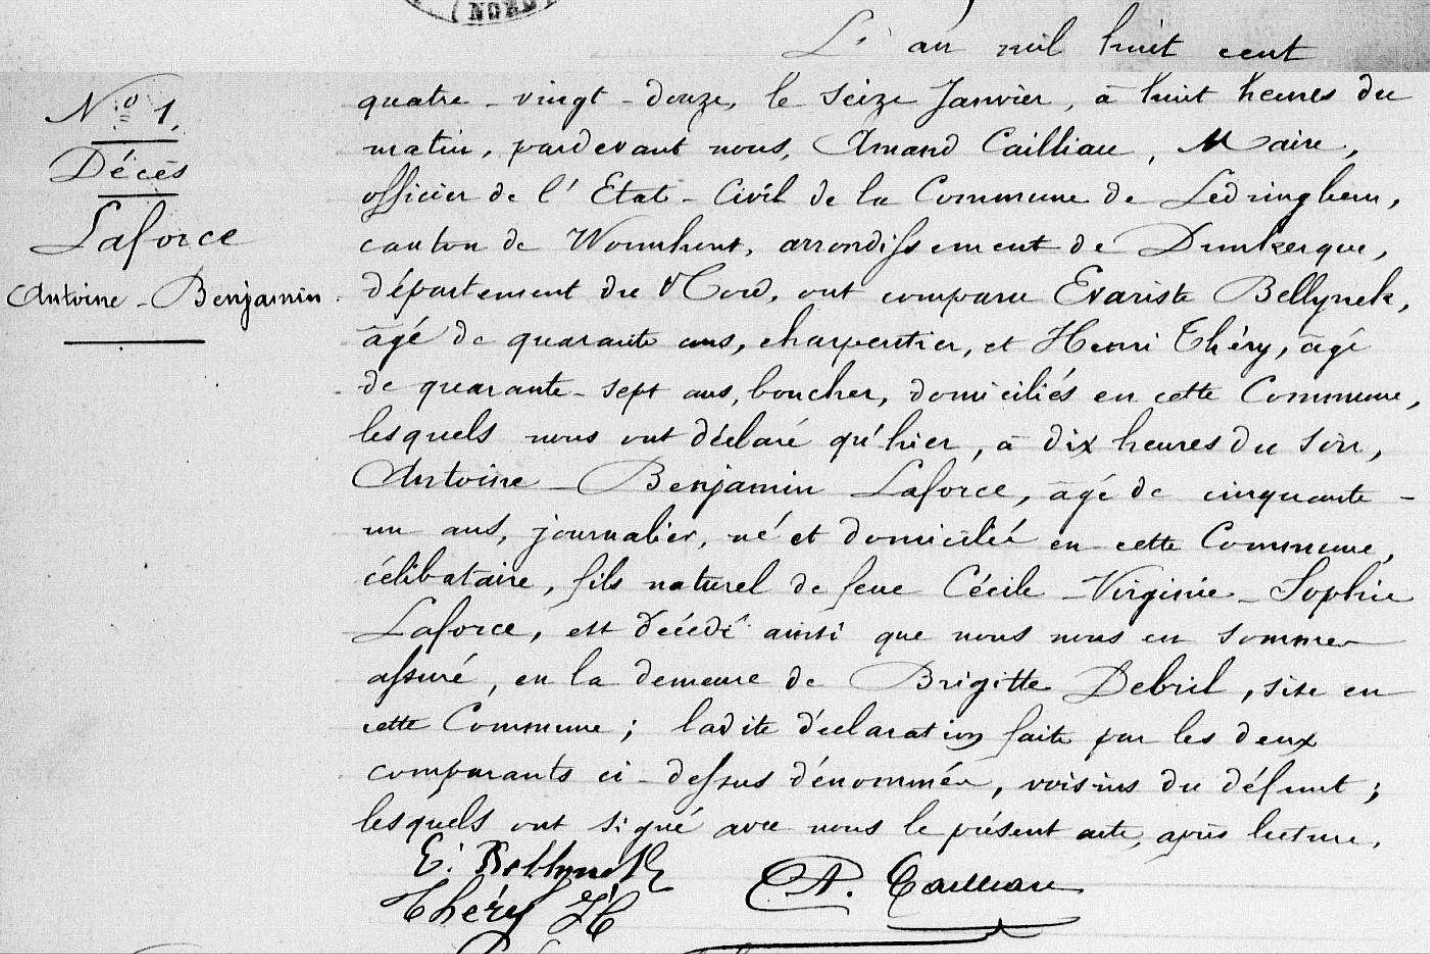 NORD
L'an mil huit cent
N° 1.
Décès
Laforce
Antoine - Benjamin
quatre - vingt - douze, le seize Janvier, à huit heures du
matin, pardevant nous, Amand Cailliau, Maire,
officier de l'Etat - Civil de la Commune de Ledringhem,
canton de Wormhout, arrondissement de Dunkerque,
département du Nord, ont comparu Evariste Bellynck,
âgé de quarante ans, charpentier, et Henri Théry, âgé
de quarante - sept ans, boucher, domiciliés en cette Commune,
lesquels nous ont déclaré qu'hier, à dix heures du soir,
Antoine - Benjamin Laforce, âgé de cinquante -
un ans, journalier, né et domicilié en cette Commune,
célibataire, fils naturel de feue Cécile - Virginie - Sophie
Laforce, est décédé ainsi que nous nous en sommes
assuré, en la demeure de Brigitte Debril, sise en
cette Commune ; ladite déclaration faite par les deux
comparants ci - dessus dénommés, voisins du défunt ;
lesquels ont signé avec nous le présent acte, après lecture.
E. Bellynck
A. Cailliau
Théry H